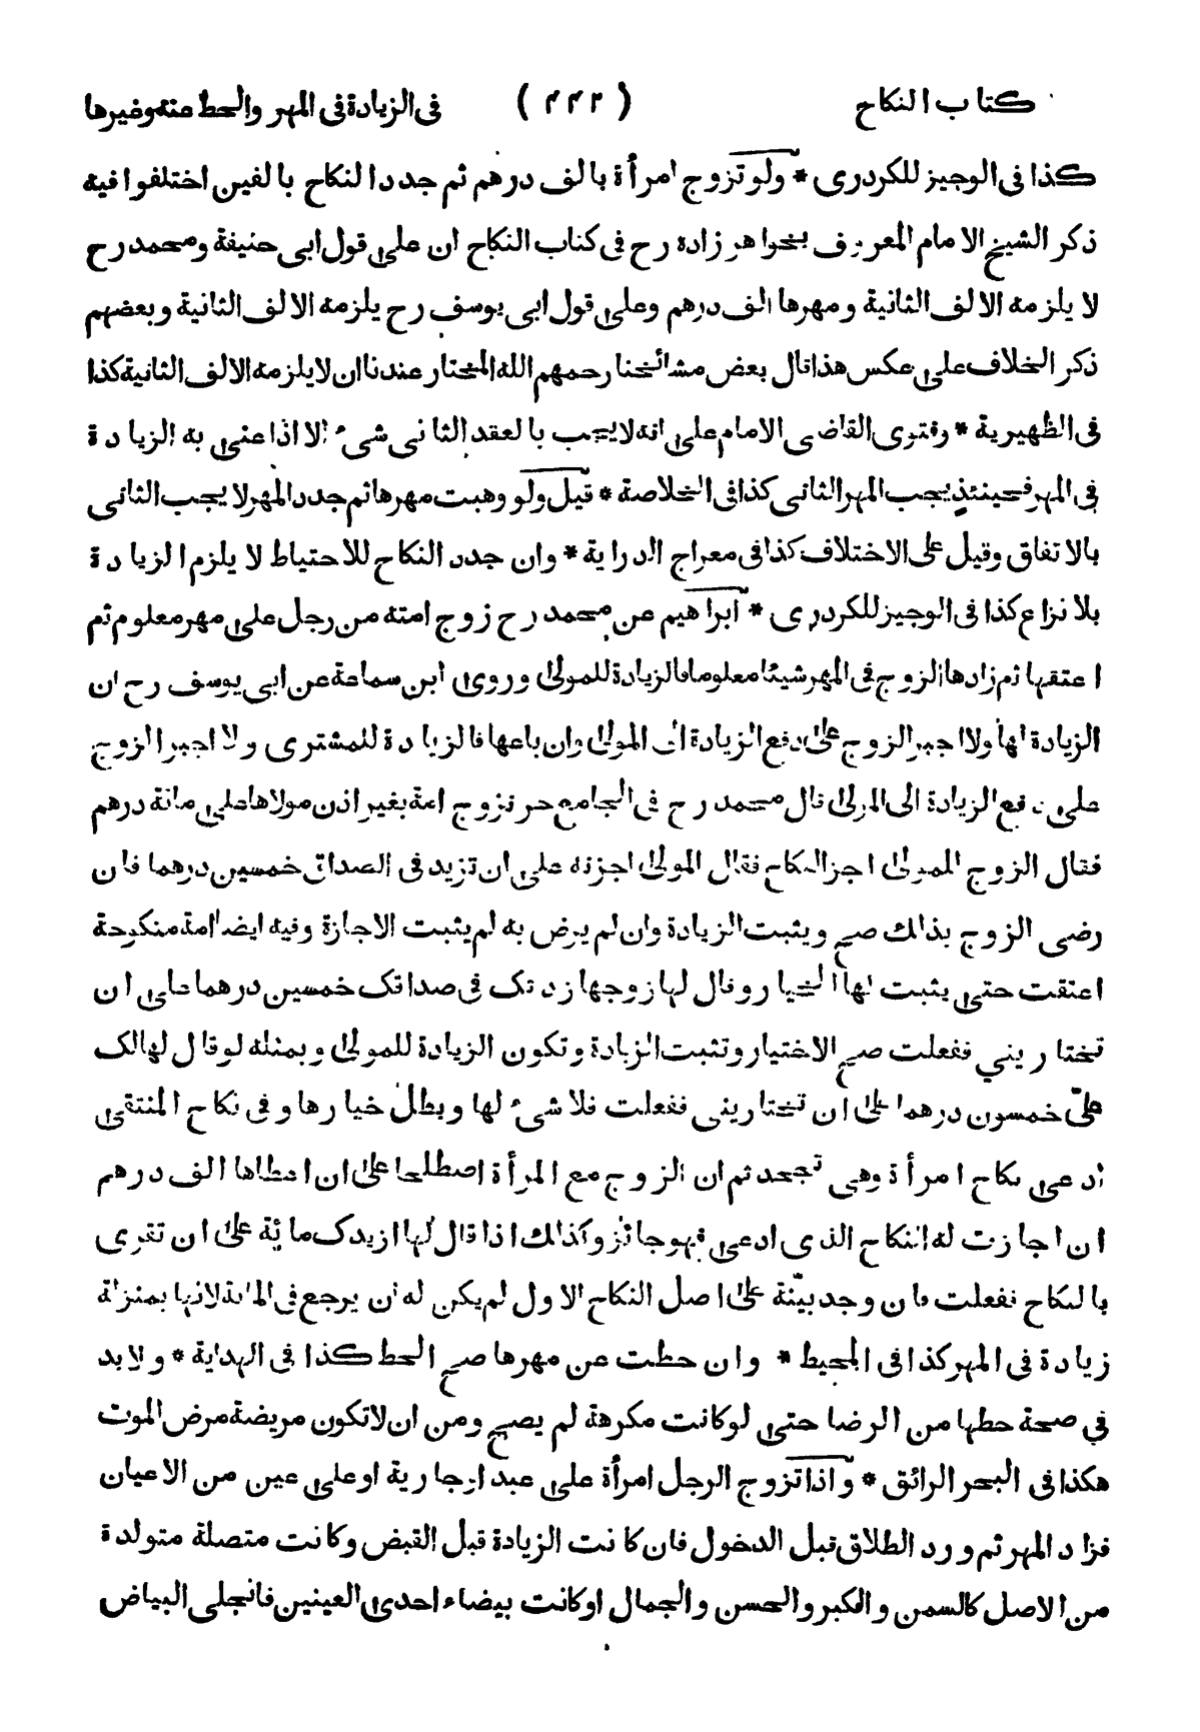 كتاب النكاح ( ٤٤٢ ) فى الزيادة فى المهر والحط منه وغيرها
كذا فى الوجيز للكردرى * ولو تزوج امرأة بالف درهم ثم جدد النكاح بالفين اختلفوا فيه
ذكر الشيخ الامام المعروف بخواهر زاده رح فى كتاب النكاح ان على قول ابى حنيفة ومحمد رح
لا يلزمه الالف الثانية ومهرها الف درهم وعلى قول ابى يوسف رح يلزمه الالف الثانية وبعضهم
ذكر الخلاف على عكس هذا قال بعض مشائخنا رحمهم الله المختار عندنا ان لا يلزمه الالف الثانية كذا
فى الظهيرية * وفتوى القاضى الامام على انه لا يجب بالعقد الثانى شىء الا اذا عنى به الزيادة
فى المهر فحينئذ يجب المهر الثانى كذا فى الخلاصة * قيل ولو وهبت مهرها ثم جدد المهر لا يجب الثانى
بالاتفاق وقيل على الاختلاف كذا فى معراج الدراية * وان جدد النكاح للاحتياط لا يلزم الزيادة
بلا نزاع كذا فى الوجيز للكردرى * ابراهيم عن محمد رح زوج امته من رجل على مهر معلوم ثم
اعتقها ثم زادها الزوج فى المهر شيئا معلوما فالزيادة للمولى وروى ابن سماعة عن ابى يوسف رح ان
الزيادة لها ولا اجبر الزوج على دفع الزيادة الى المولى وان باعها فالزيادة للمشترى ولا اجبر الزوج
على دفع الزيادة الى المولى قال محمد رح فى الجامع حر تزوج امة بغير اذن مولاها على مائة درهم
فقال الزوج للمولى اجز النكاح فقال المولى اجزته على ان تزيد فى الصداق خمسين درهما فان
رضى الزوج بذلك صح ويثبت الزيادة وان لم يرض به لم يثبت الاجازة وفيه ايضا امة منكوحة
اعتقت حتى يثبت لها الخيار وقال لها زوجها زدتك فى صداقك خمسين درهما على ان
تختارينى ففعلت صح الاختيار وتثبت الزيادة وتكون الزيادة للمولى وبمثله لو قال لها لك
علىّ خمسون درهما على ان تختارينى ففعلت فلا شىء لها وبطل خيارها وفى نكاح المنتقى
ادعى نكاح امرأة وهى تجحد ثم ان الزوج مع المرأة اصطلحا على ان اعطاها الف درهم
ان اجازت له النكاح الذى ادعى فهو جائز وكذلك اذا قال لها ازيدك مائة على ان تقرى
بالنكاح ففعلت فان وجد بيّنة على اصل النكاح الاول لم يكن له ان يرجع فى المائة لانها بمنزلة
زيادة فى المهر كذا فى المحيط * وان حطت عن مهرها صح الحط كذا فى الهداية * ولا بد
في صحة حطها من الرضا حتى لو كانت مكرهة لم يصح ومن ان لا تكون مريضة مرض الموت
هكذا فى البحر الرائق * واذا تزوج الرجل امرأة على عبد او جارية او على عين من الاعيان
فزاد المهر ثم ورد الطلاق قبل الدخول فان كانت الزيادة قبل القبض وكانت متصلة متولدة
من الاصل كالسمن والكبر والحسن والجمال او كانت بيضاء احدى العينين فانجلى البياض